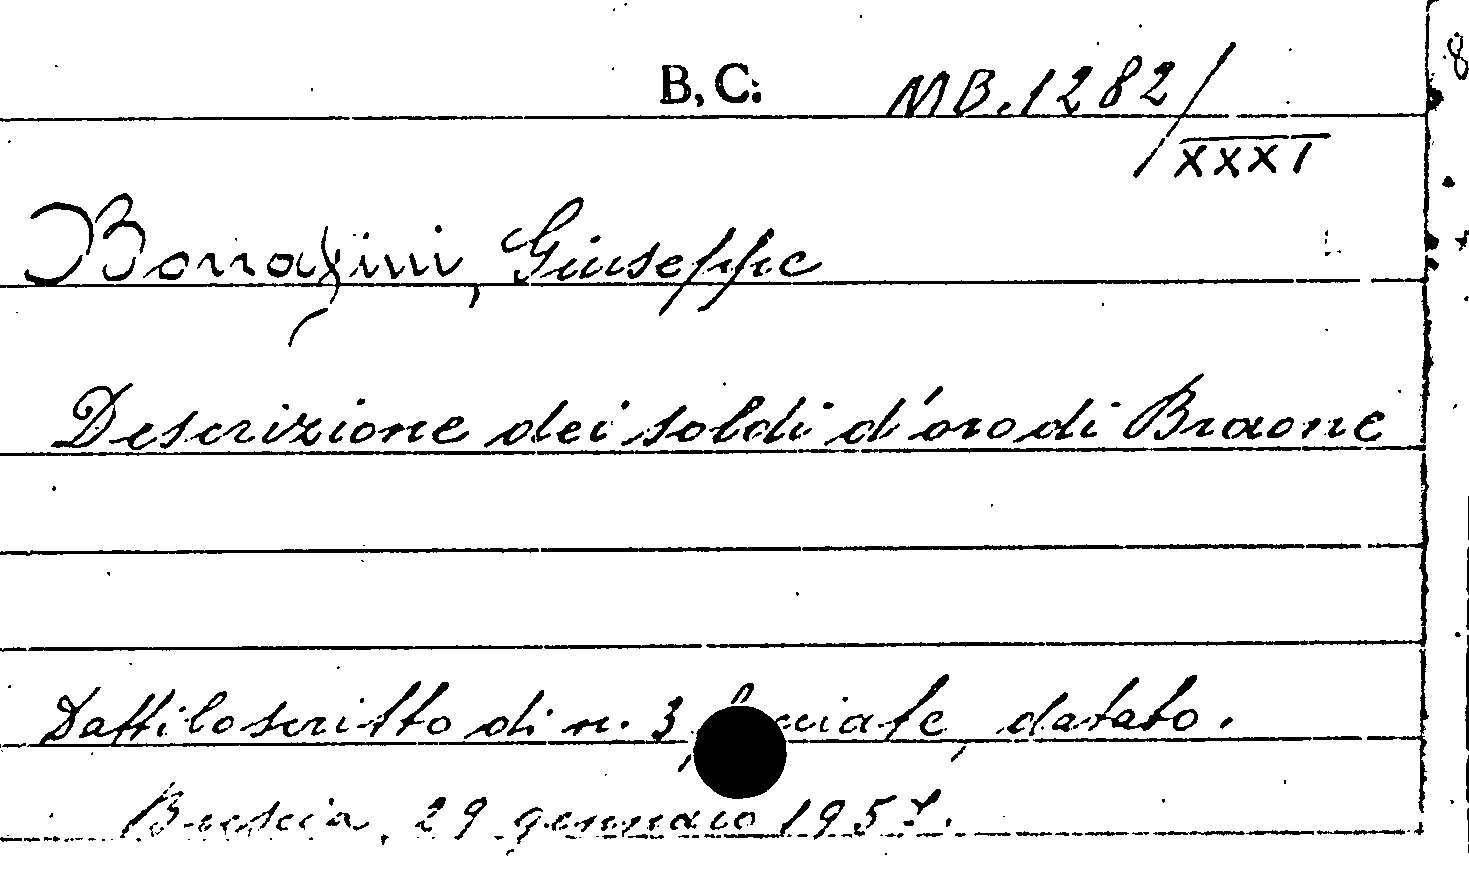 B. C. MB. 1282/
XXXI
Bonafini, Giuseppe
Descrizione dei soldi d'oro di Braone
Dattiloscritto di n. 3 facciate, datato.
Brescia, 29 gennaio 1957.